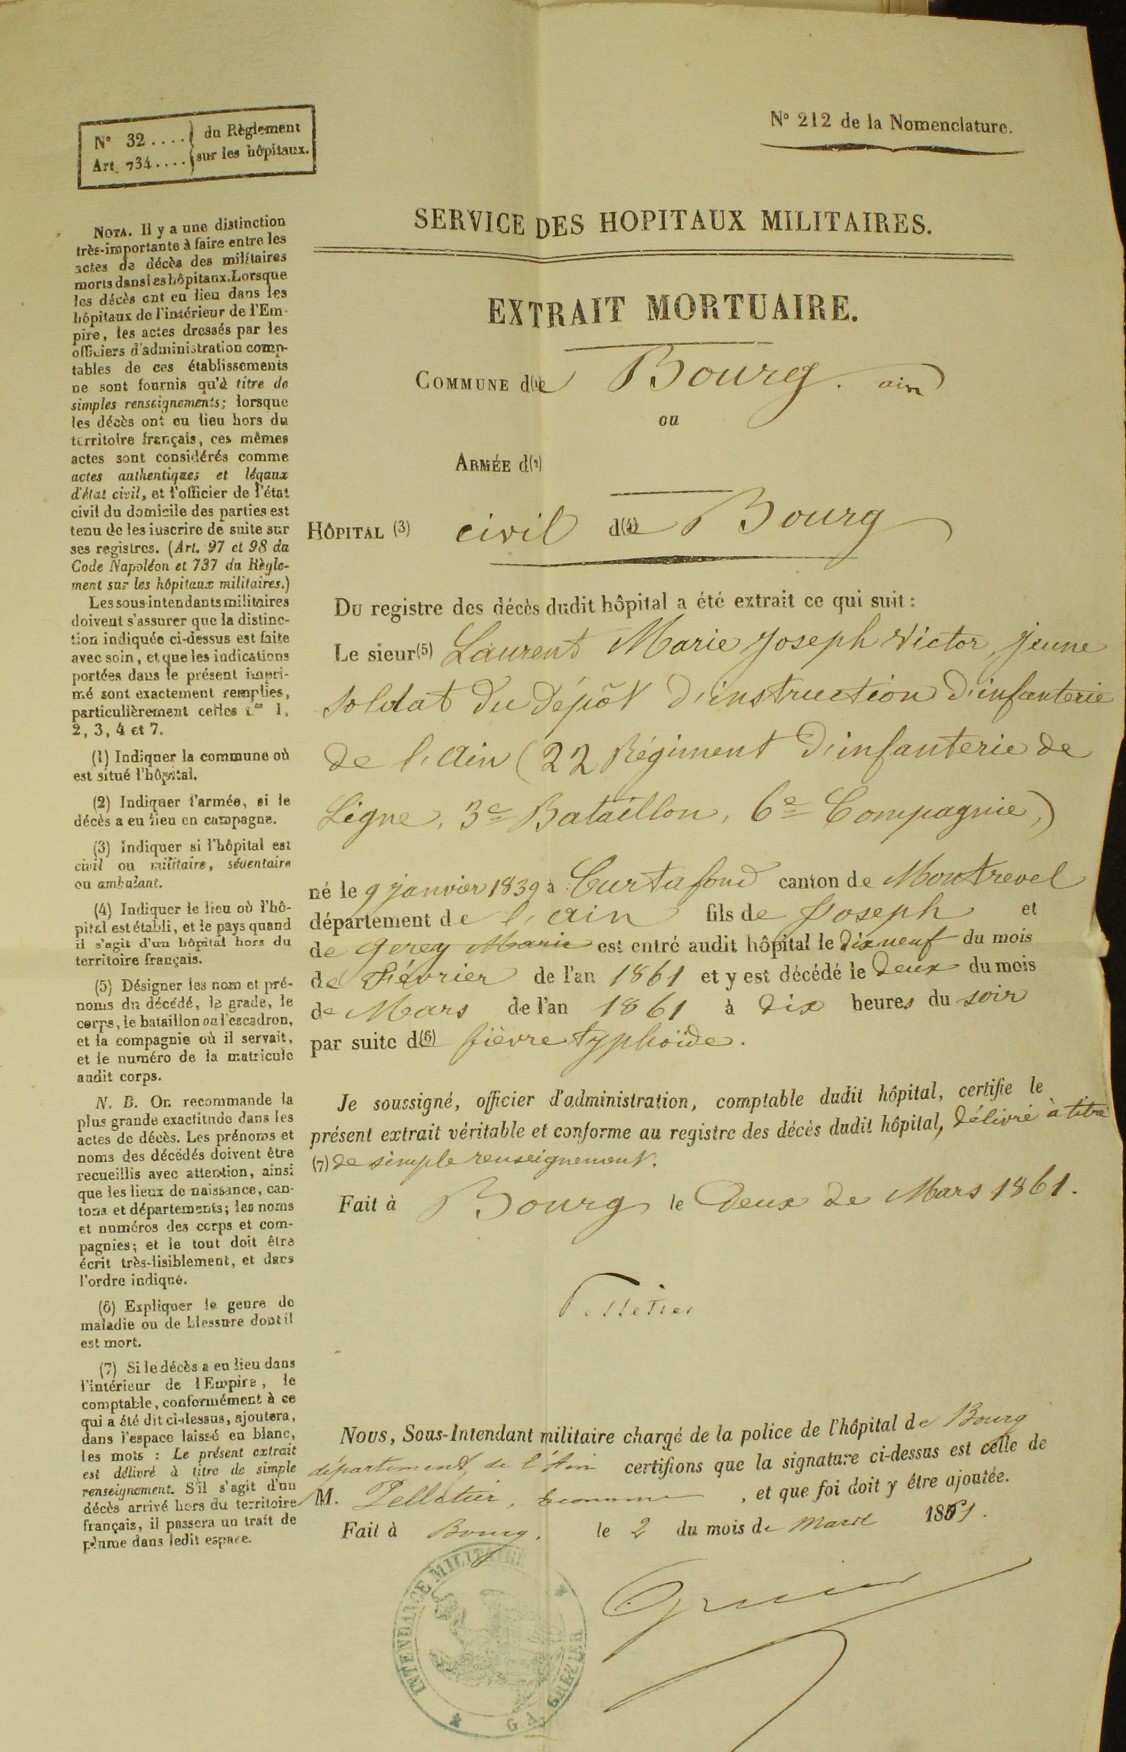 N° 32 .... } du Règlement
Art. 734 .... } sur les hôpitaux.
N° 212 de la Nomenclature.
SERVICE DES HOPITAUX MILITAIRES.
EXTRAIT MORTUAIRE.
COMMUNE d(1)e Bourg. ain
ou
ARMÉE d(2)
HÔPITAL (3) civil d(4)e Bourg
Du registre des décès dudit hôpital a été extrait ce qui suit :
Le sieur(5) Laurent Marie Joseph Victor, jeune
soldat du dépôt d'instruction d'infanterie
de l'Ain (22 Régiment d'infanterie de
Ligne, 3e Bataillon, 6e Compagnie,)
né le 9 janvier 1839 à Curtafond canton de Montrevel
département de l'ain fils de Joseph et
de Gerey Marie est entré audit hôpital le dix neuf du mois
de Février de l'an 1861 et y est décédé le deux du mois
de Mars de l'an 1861 à dix heures du soir
par suite d(6) fièvre typhoïde.
Je soussigné, officier d'administration, comptable dudit hôpital, certifie le
présent extrait véritable et conforme au registre des décès dudit hôpital, délivré à titre
(7) de simple renseignement.
Fait à Bourg le Deux de Mars 1861.
Pelletier
Nous, Sous-Intendant militaire chargé de la police de l'hôpital de Bourg
département de l'Ain certifions que la signature ci-dessus est celle de
M. Pelletier, , et que foi doit y être ajoutée.
Fait à Bourg. le 2 du mois de Mars 1861.
INTENDANCE MILITAIRE
NOTA. Il y a une distinction
très-importante à faire entre les
actes de décès des militaires
morts dans les hôpitaux. Lorsque
les décès ont eu lieu dans les
hôpitaux de l'intérieur de l'Em-
pire, les actes dressés par les
officiers d'administration comp-
tables de ces établissements
ne sont fournis qu'à titre de
simples renseignements; lorsque
les décès ont eu lieu hors du
territoire français, ces mêmes
actes sont considérés comme
actes authentiques et légaux
d'état civil, et l'officier de l'état
civil du domicile des parties est
tenu de les inscrire de suite sur
ses registres. (Art. 97 et 98 du
Code Napoléon et 737 du Règle-
ment sur les hôpitaux militaires.)
Les sous-intendants militaires
doivent s'assurer que la distinc-
tion indiquée ci-dessus est faite
avec soin, et que les indications
portées dans le présent impri-
mé sont exactement remplies,
particulièrement celles nos 1,
2, 3, 4 et 7.
(1) Indiquer la commune où
est situé l'hôpital.
(2) Indiquer l'armée, si le
décès a eu lieu en campagne.
(3) Indiquer si l'hôpital est
civil ou militaire, sédentaire
ou ambulant.
(4) Indiquer le lieu où l'hô-
pital est établi, et le pays quand
il s'agit d'un hôpital hors du
territoire français.
(5) Désigner les nom et pré-
noms du décédé, le grade, le
corps, le bataillon ou l'escadron,
et la compagnie où il servait,
et le numéro de la matricule
audit corps.
N. B. On recommande la
plus grande exactitude dans les
actes de décès. Les prénoms et
noms des décédés doivent être
recueillis avec attention, ainsi
que les lieux de naissance, can-
tons et départements; les noms
et numéros des corps et com-
pagnies; et le tout doit être
écrit très-lisiblement, et dans
l'ordre indiqué.
(6) Expliquer le genre de
maladie ou de blessure dont il
est mort.
(7) Si le décès a eu lieu dans
l'intérieur de l'Empire, le
comptable, conformément à ce
qui a été dit ci-dessus, ajoutera,
dans l'espace laissé en blanc,
les mots : Le présent extrait
est délivré à titre de simple
renseignement. S'il s'agit d'un
décès arrivé hors du territoire
français, il passera un trait de
plume dans ledit espace.